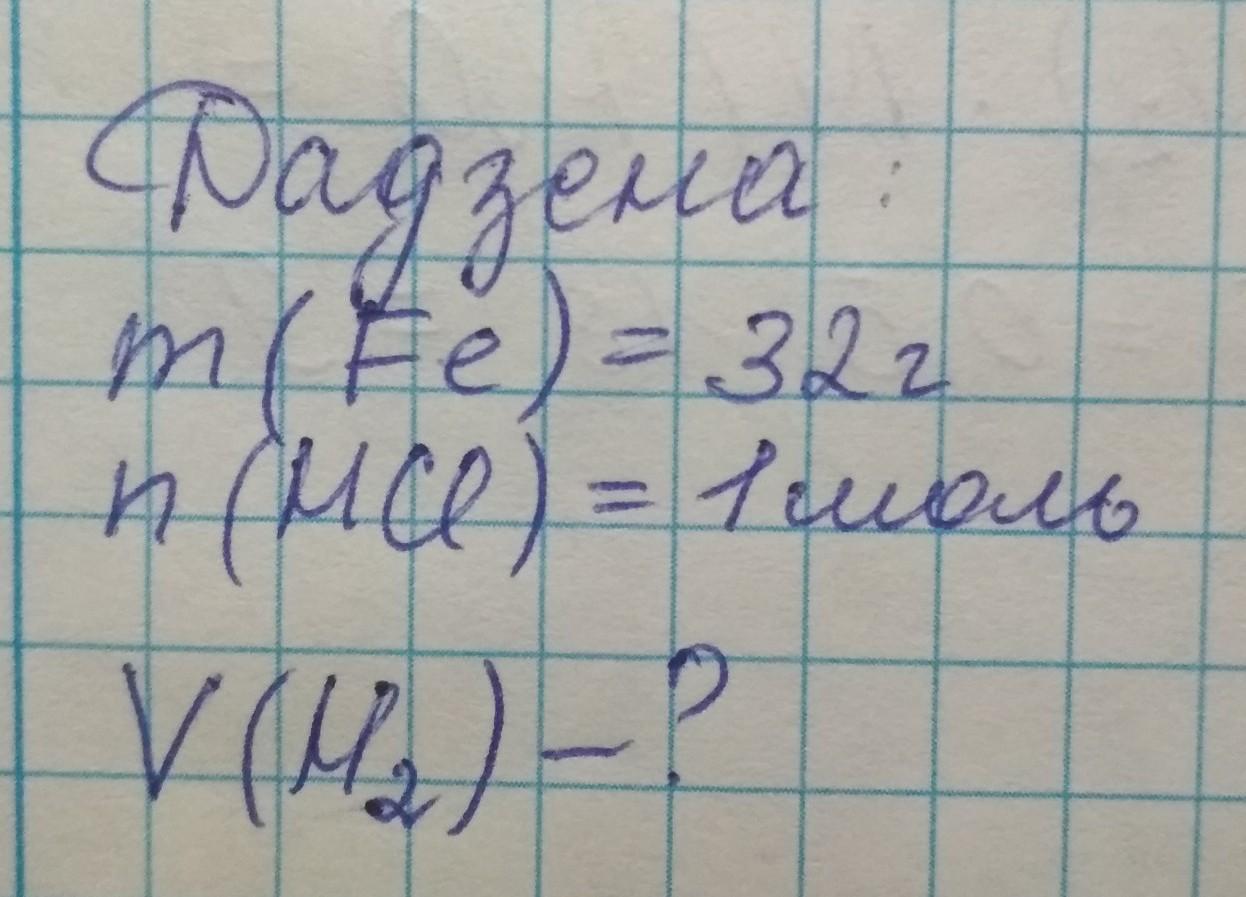 Дадзена:
m(Fe) = 32г
n(HCl) = 1моль
V(H₂) – ?